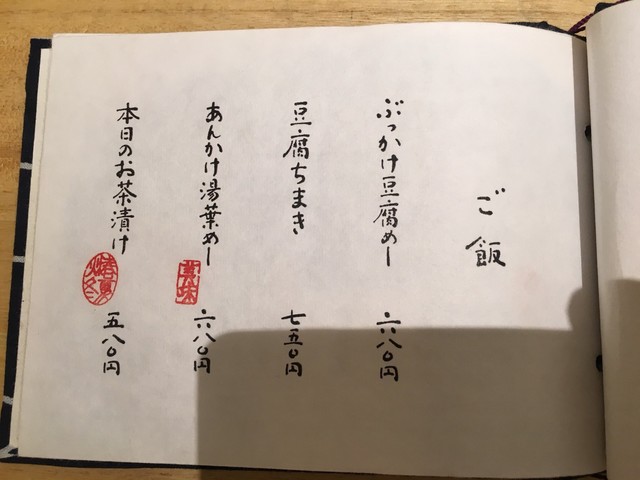 ご飯
ぶっかけ豆腐めし 六八〇円
豆腐ちまき 七五〇円
あんかけ湯葉めし 六八〇円
本日のお茶漬け 五八〇円